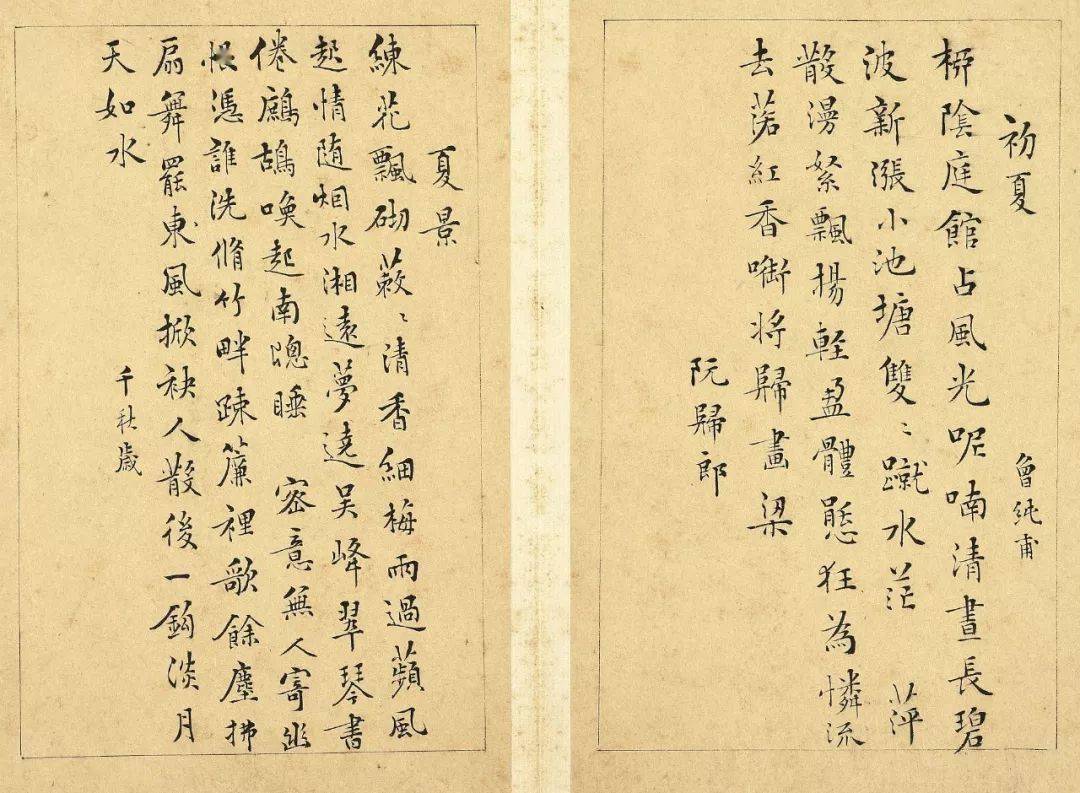 初夏 曾純甫
栁陰庭館占風光呢喃清晝長碧
波新漲小池塘雙〻蹴水茫 萍
散漫絮飄揚輕盈體態狂為憐流
去落紅香啣将歸畫梁
阮歸郎
夏景
練花飄砌蔌〻清香細梅雨過蘋風
起情随湘水遠夢遶吴峰翠琴書
倦鷓鴣喚起南窻睡 密意無人寄幽
恨憑誰洗脩竹畔疎簾裡歌餘塵拂
扇舞罷東風掀袂人散後一鈎淡月
天如水
千秋歲